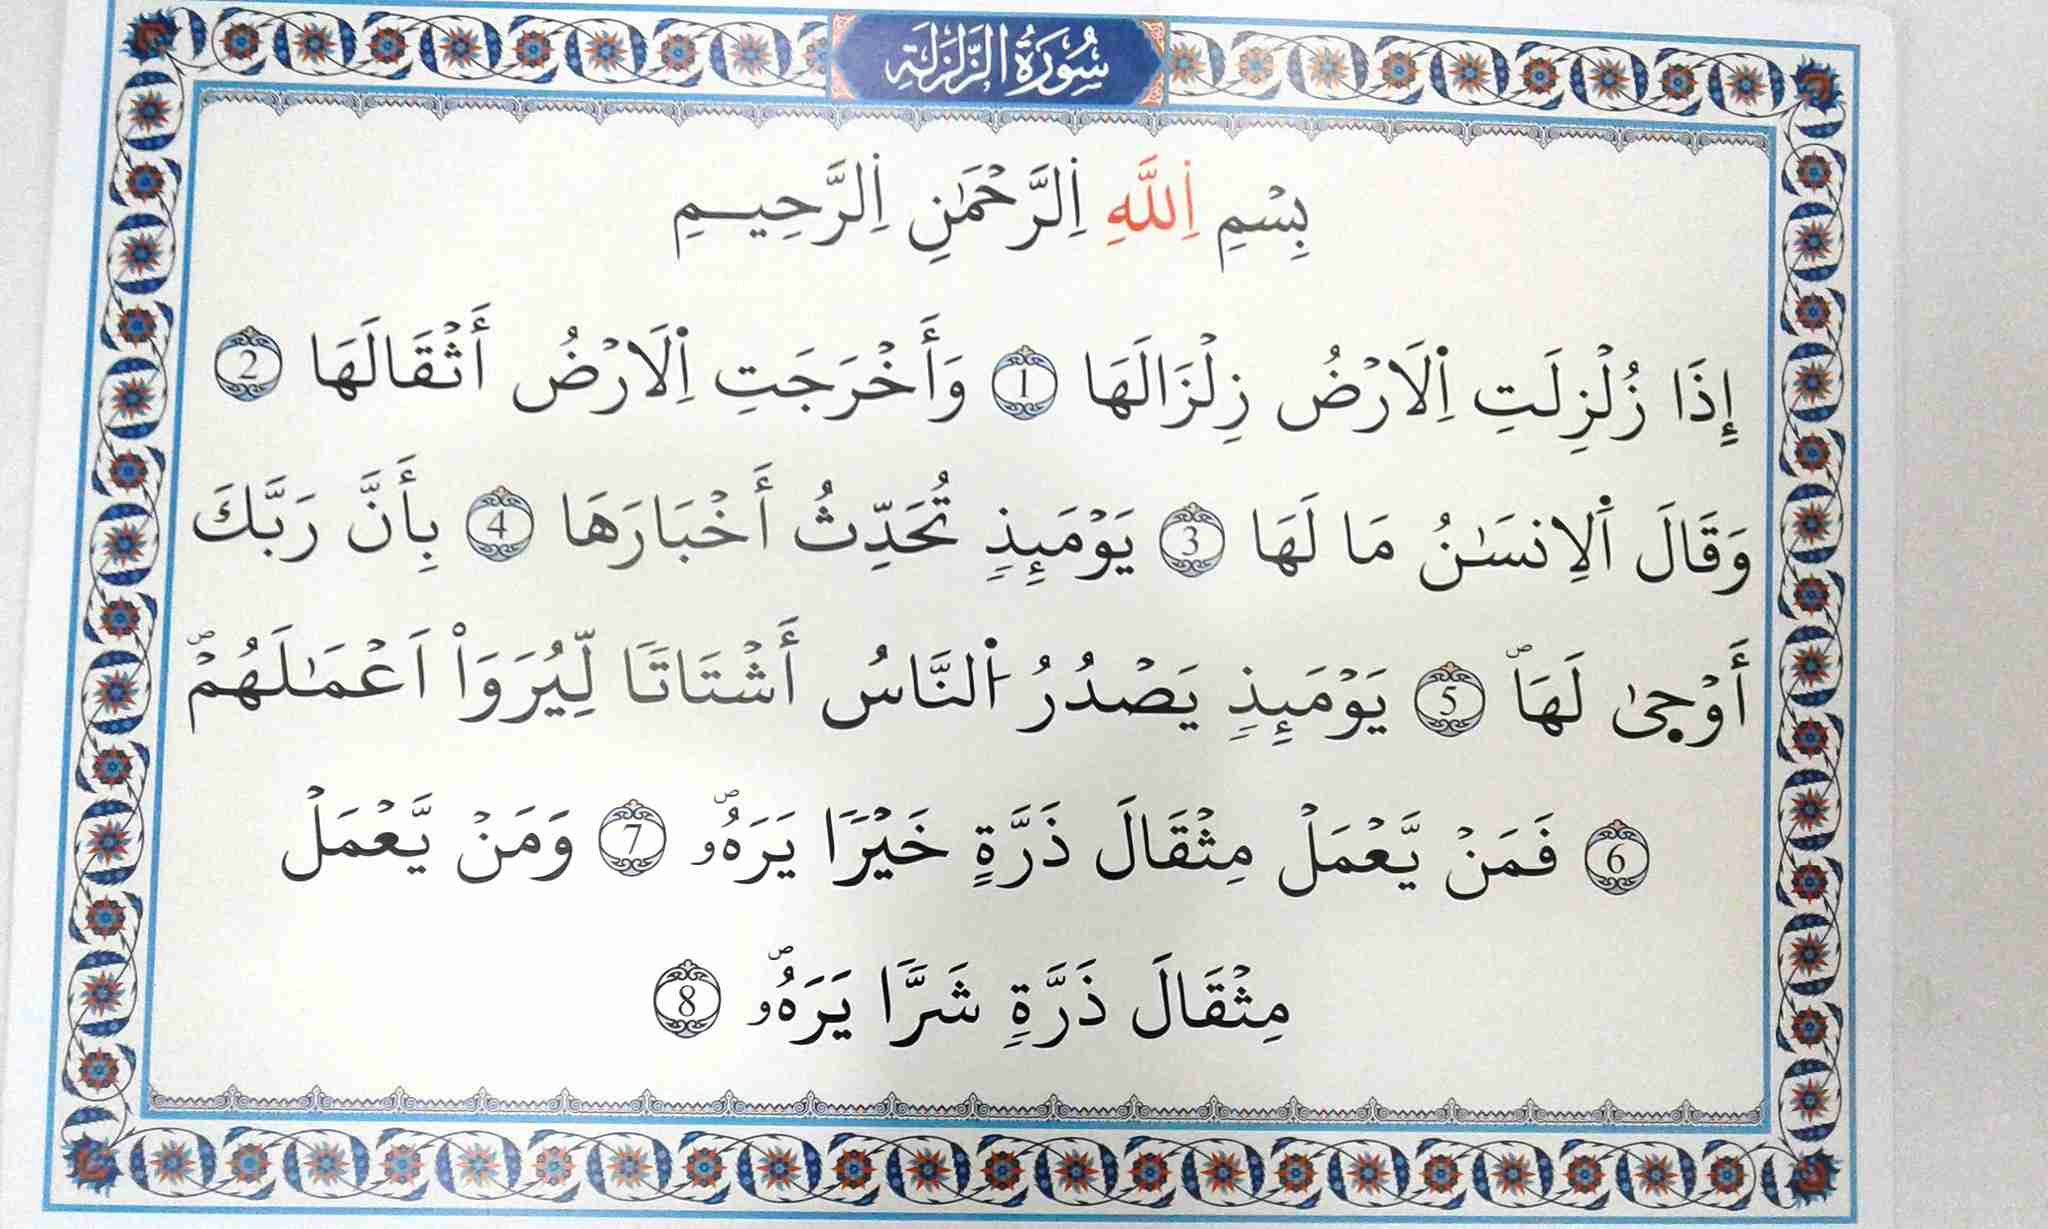 سُورَةُ الزَّلْزَلَةِ
بِسْمِ اِ۬للَّهِ اِ۬لرَّحْمَٰنِ اِ۬لرَّحِيمِ
إِذَا زُلْزِلَتِ اِ۬لَارْضُ زِلْزَالَهَا 1 وَأَخْرَجَتِ اِ۬لَارْضُ أَثْقَالَهَا 2
وَقَالَ اَ۬لِانسَٰنُ مَا لَهَا 3 يَوْمَئِذٖ تُحَدِّثُ أَخْبَارَهَا 4 بِأَنَّ رَبَّكَ
أَوْح۪يٰ لَهَاۖ 5 يَوْمَئِذٖ يَصْدُرُ اُ۬لنَّاسُ أَشْتَاتاٗ لِّيُرَوَاْ اَعْمَٰلَهُمْۖ
6 فَمَنْ يَّعْمَلْ مِثْقَالَ ذَرَّةٍ خَيْراٗ يَرَهُۥۖ 7 وَمَنْ يَّعْمَلْ
مِثْقَالَ ذَرَّةٖ شَرّاٗ يَرَهُۥۖ 8